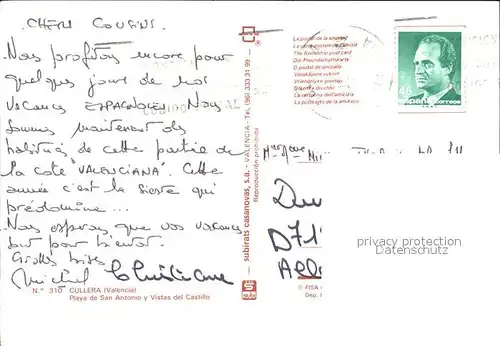 CHERS COUSINS.
Nous profitons encore pour
quelques jours de nos
vacances ESPAGNOLES. Nous
sommes maintenant des
habitués de cette partie de
la cote "VALENCIANA". Cette
année c'est la sieste qui
prédomine...
Nous esperons que vos vacances
sont pour bientot.
Grosses bises
Michel Christiane
N.º 310 CULLERA (Valencia)
Playa de San Antonio y Vistas del Castillo
subirats casanovas, s.a. - VALENCIA - Tel. (96) 333 31 99 -
Reproducción prohibida
La postal de la amistad
La carte postale de l'amitié
The friendship post card
Die Freundschaftskarte
O postal da amizade
Vriendskapskaart
La cartolina dell'amicizia
45
España correos
D71
privacy protection
Datenschutz
© FISA
Dep.